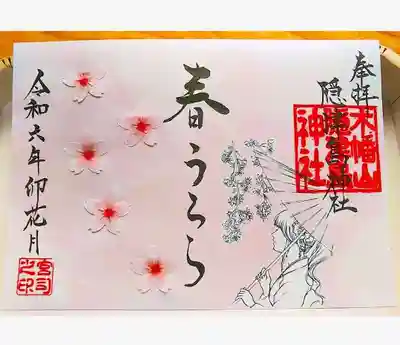 奉拝
木幡山
隠津島神社
神社
春うらら
令和六年卯花月
宮司
之印